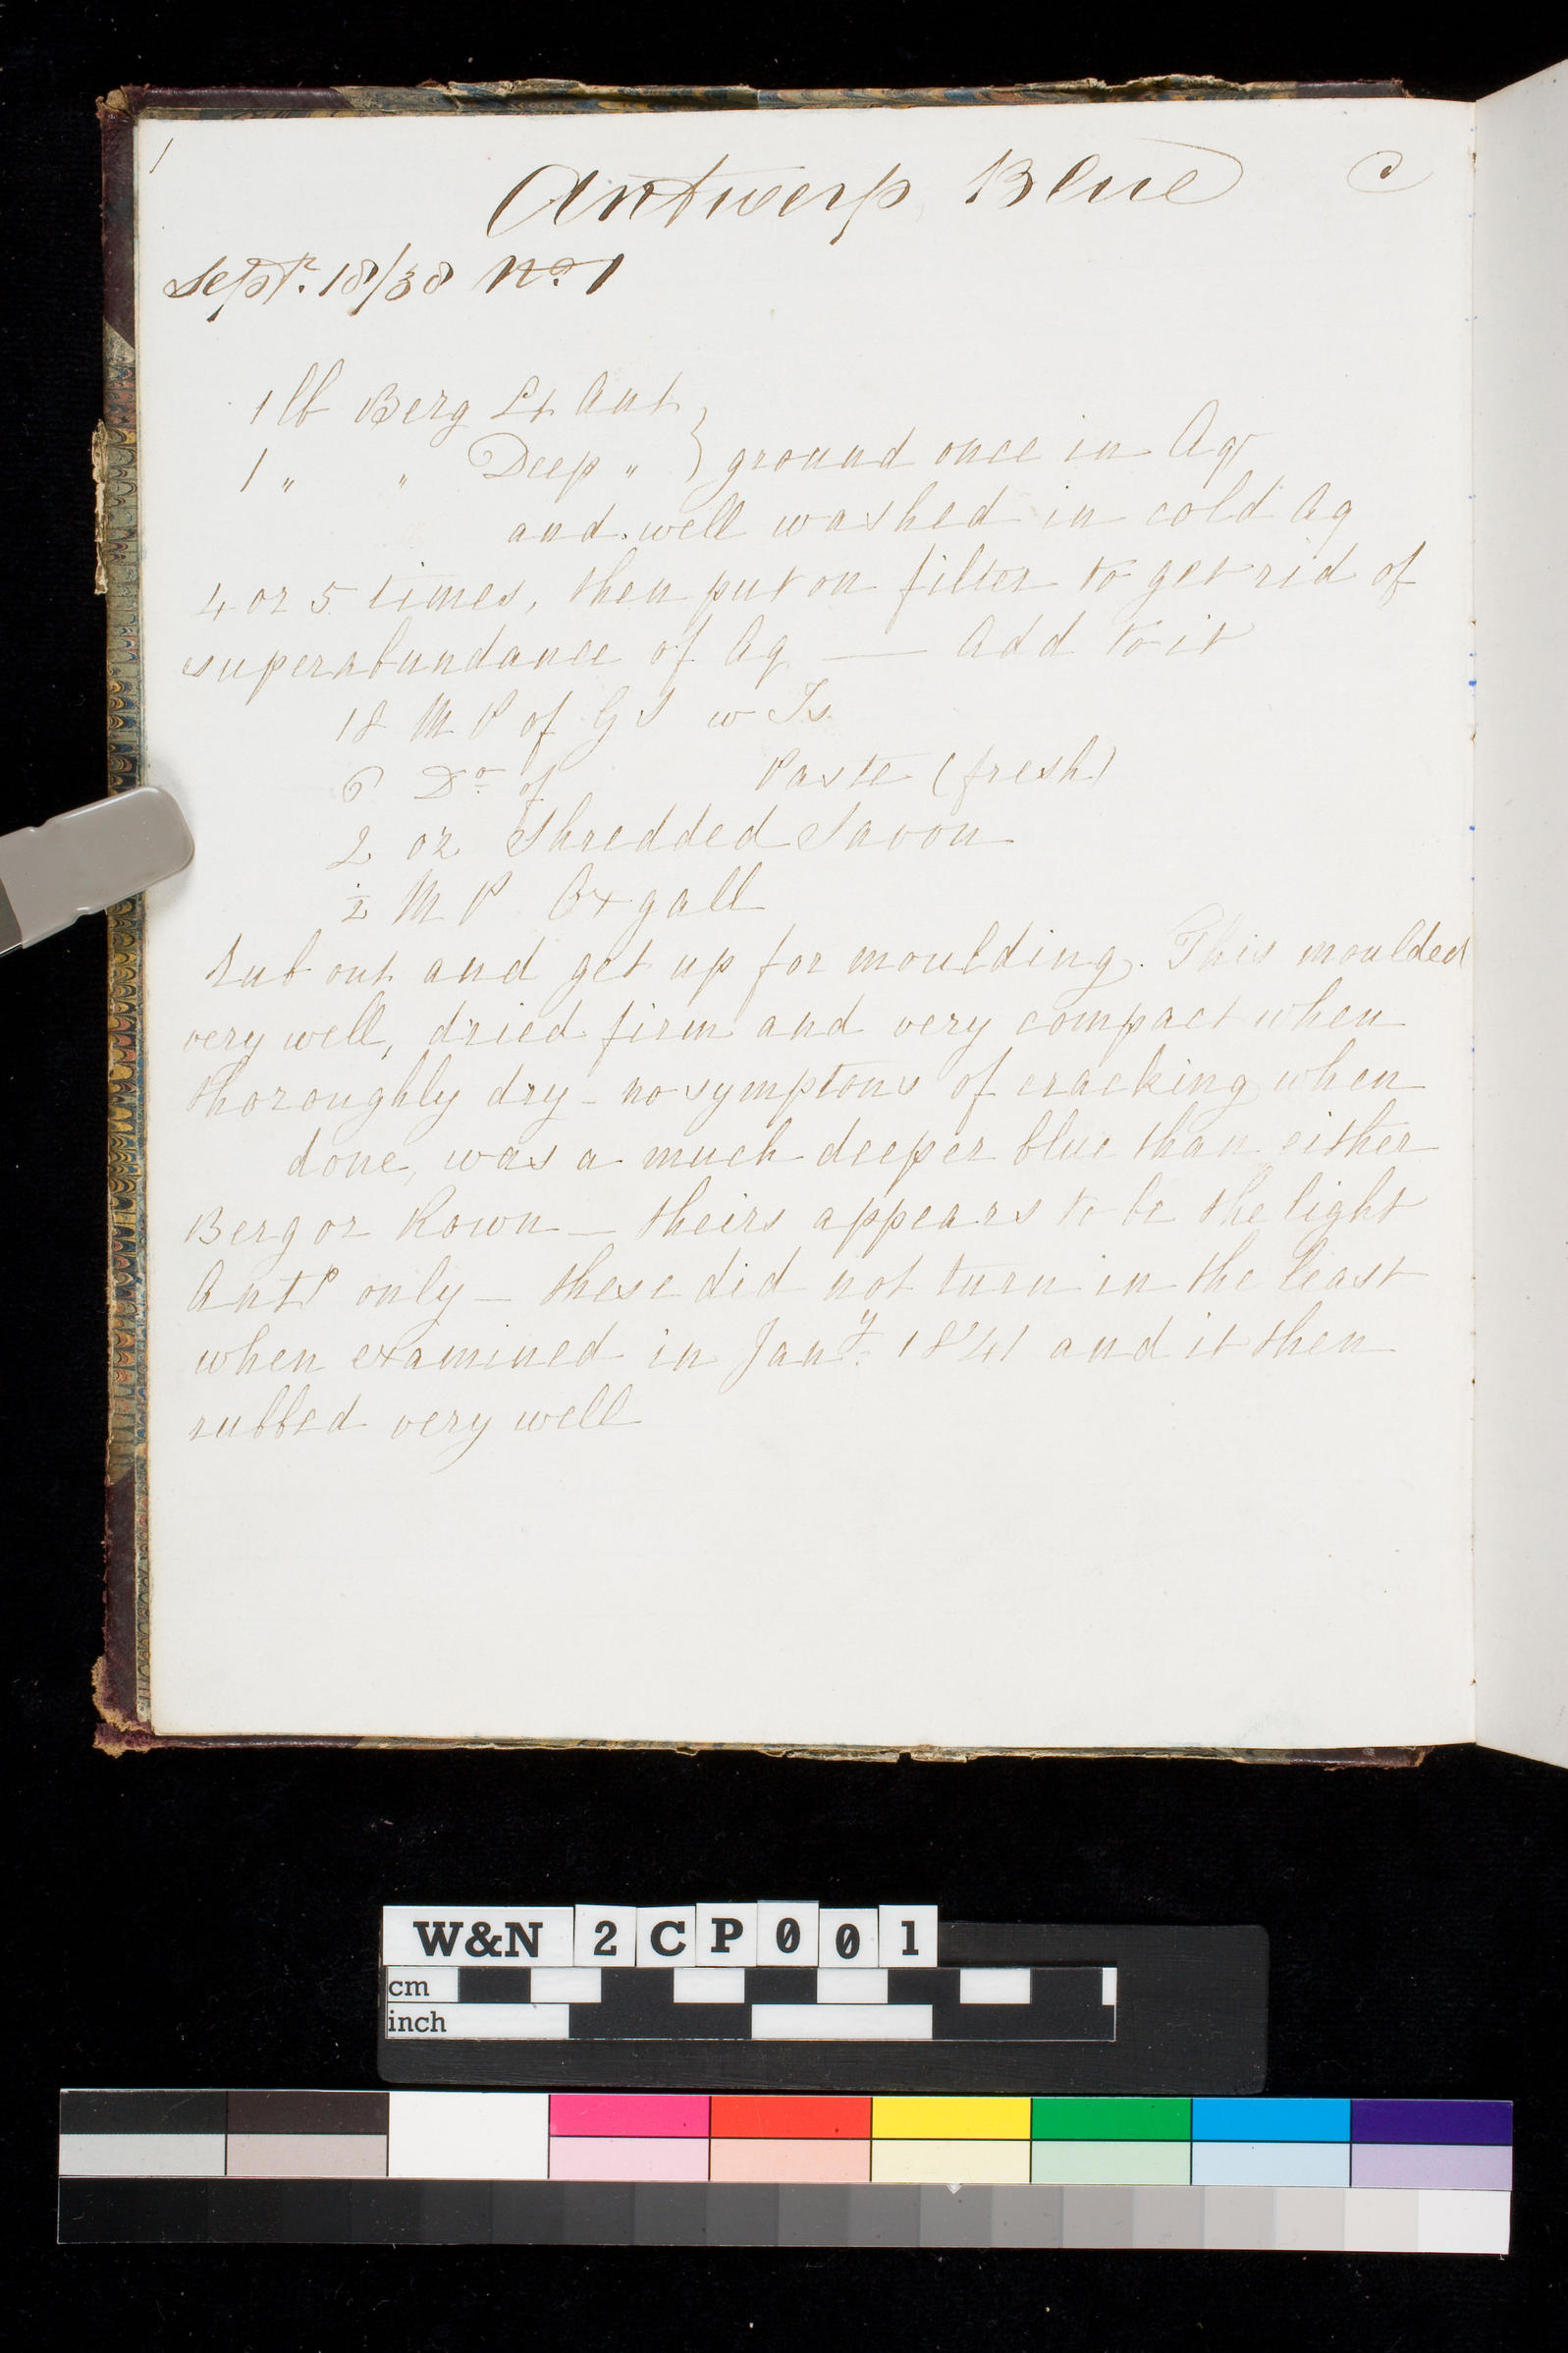 1
Antwerp Blue C
Septr. 18/38 No. 1
1 lb Berg Lt Ant
1 " " Deep " } ground once in Aq
and well washed in cold Aq
4 or 5 times, then put on filter to get rid of
superabundance of Aq — Add to it
18 M P of G S w Ts.
6 Do of Paste (fresh)
2 oz Shredded Savon
1/2 M P Oxgall
Rub out and get up for moulding. This moulded
very well, dried firm and very compact when
thoroughly dry - no symptons of cracking when
done, was a much deeper blue than either
Berg or Rown — theirs appears to be the light
Antp only — these did not turn in the least
when examined in Jany. 1841 and it then
rubbed very well
W&N 2CP001
cm
inch